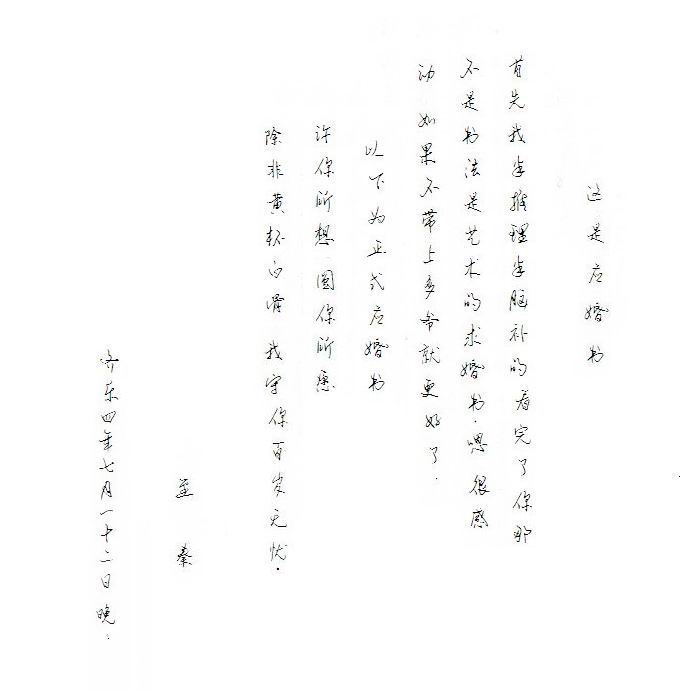 这是应婚书
首先我半推理半脑补的看完了你那
不是书法是艺术的求婚书.嗯很感
动如果不带上多爷就更好了.
以下为正式应婚书
许你所想 圆你所愿
除非黄杯白骨 我守你百岁无忧.
孟秦
齐东四年七月一十二日晚.